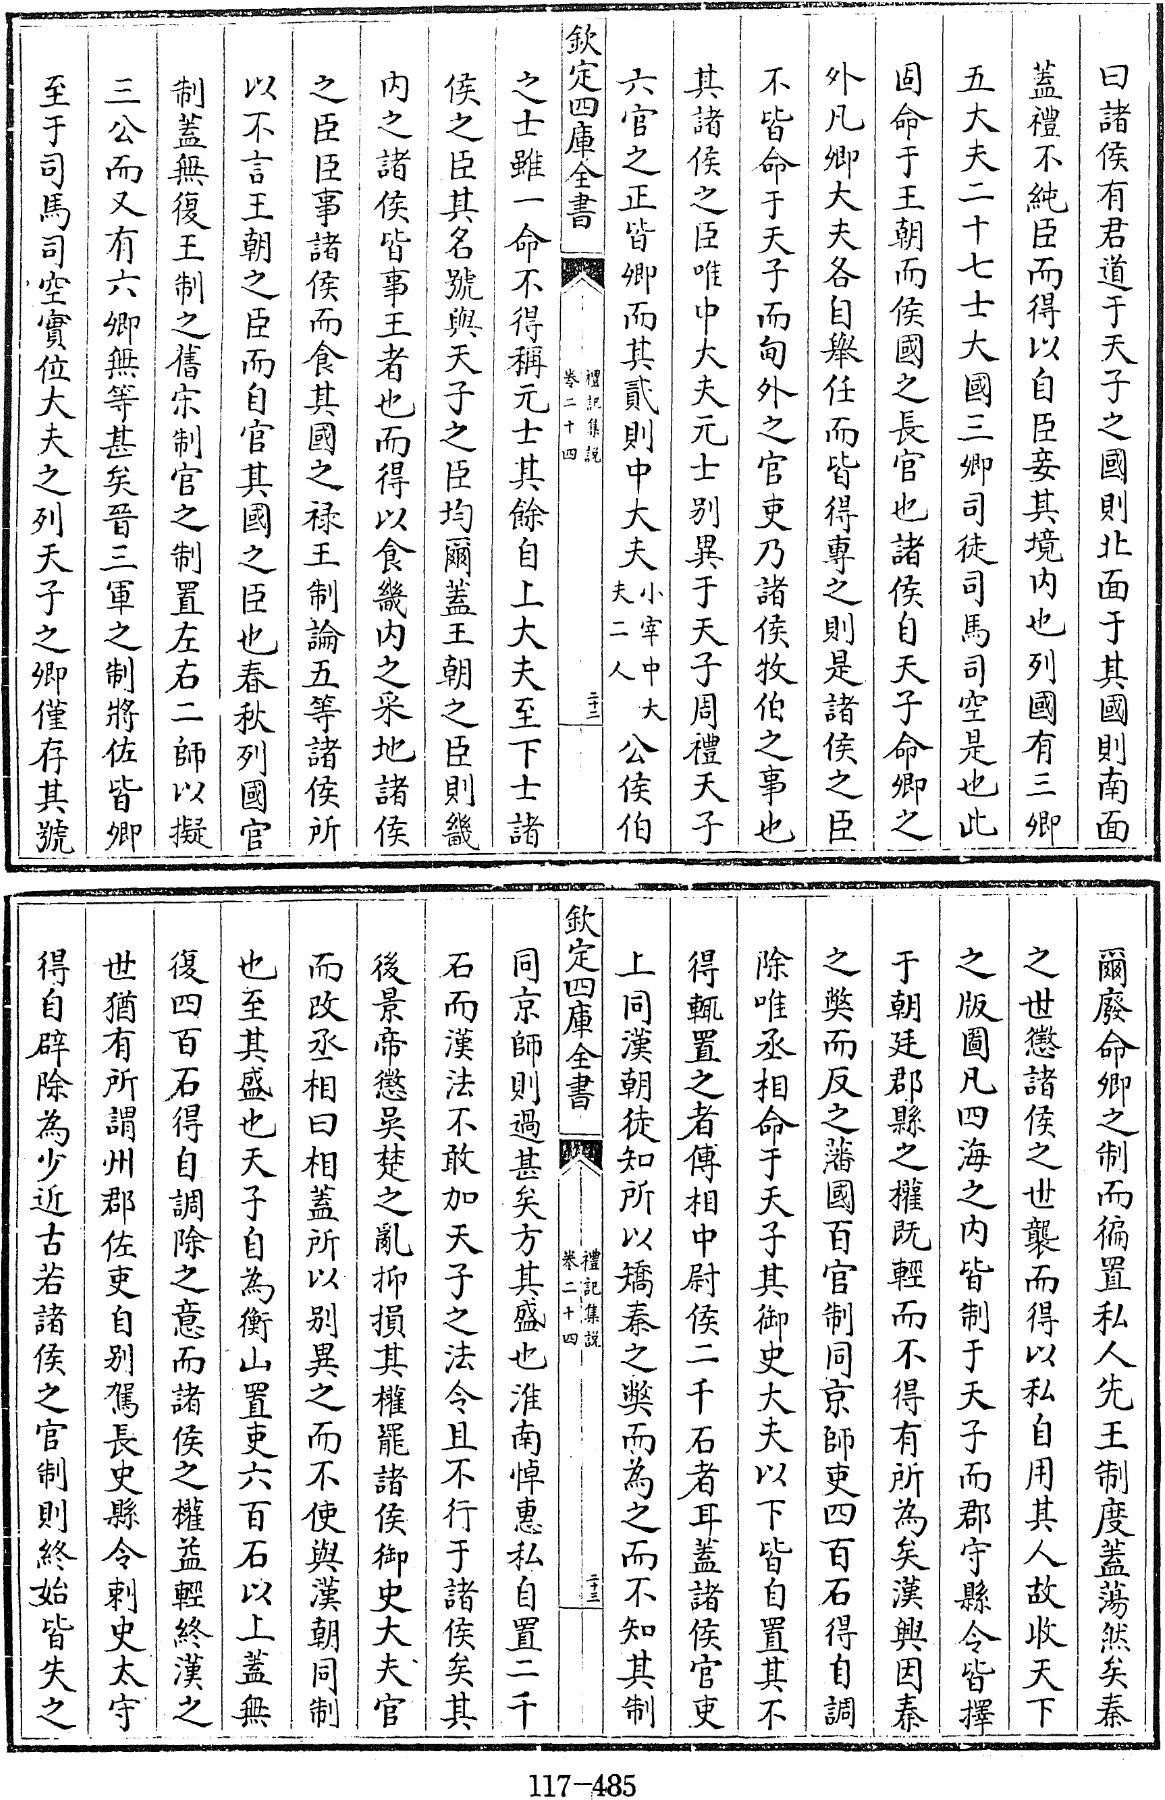 曰諸侯有君道于天子之國則北面于其國則南面
蓋禮不純臣而得以自臣妾其境内也列國有三卿
五大夫二十七士大國三卿司徒司馬司空是也此
固命于王朝而侯國之長官也諸侯自天子命卿之
外凡卿大夫各自舉任而皆得專之則是諸侯之臣
不皆命于天子而甸外之官吏乃諸侯牧伯之事也
其諸侯之臣唯中大夫元士别異于天子周禮天子
六官之正皆卿而其貳則中大夫小宰中大夫二人公侯伯
欽定四庫全書
禮記集説
卷二十四
二十三
之士雖一命不得稱元士其餘自上大夫至下士諸
侯之臣其名號與天子之臣均爾蓋王朝之臣則畿
内之諸侯皆事王者也而得以食畿内之采地諸侯
之臣臣事諸侯而食其國之禄王制論五等諸侯所
以不言王朝之臣而自官其國之臣也春秋列國官
制蓋無復王制之舊宋制官之制置左右二師以擬
三公而又有六卿無等甚矣晉三軍之制將佐皆卿
至于司馬司空實位大夫之列天子之卿僅存其號
爾廢命卿之制而徧置私人先王制度蓋蕩然矣秦
之世懲諸侯之世襲而得以私自用其人故收天下
之版圖凡四海之内皆制于天子而郡守縣令皆擇
于朝廷郡縣之權既輕而不得有所為矣漢興因秦
之獘而反之藩國百官制同京師吏四百石得自調
除唯丞相命于天子其御史大夫以下皆自置其不
得輒置之者傅相中尉侯二千石者耳蓋諸侯官吏
上同漢朝徒知所以矯秦之獘而為之而不知其制
欽定四庫全書
禮記集説
卷二十四
二十三
同京師則過甚矣方其盛也淮南悼惠私自置二千
石而漢法不敢加天子之法令且不行于諸侯矣其
後景帝懲吳楚之亂抑損其權罷諸侯御史大夫官
而改丞相曰相蓋所以别異之而不使與漢朝同制
也至其盛也天子自為衡山置吏六百石以上蓋無
復四百石得自調除之意而諸侯之權益輕終漢之
世猶有所謂州郡佐吏自别駕長史縣令刺史太守
得自辟除為少近古若諸侯之官制則終始皆失之
117-485